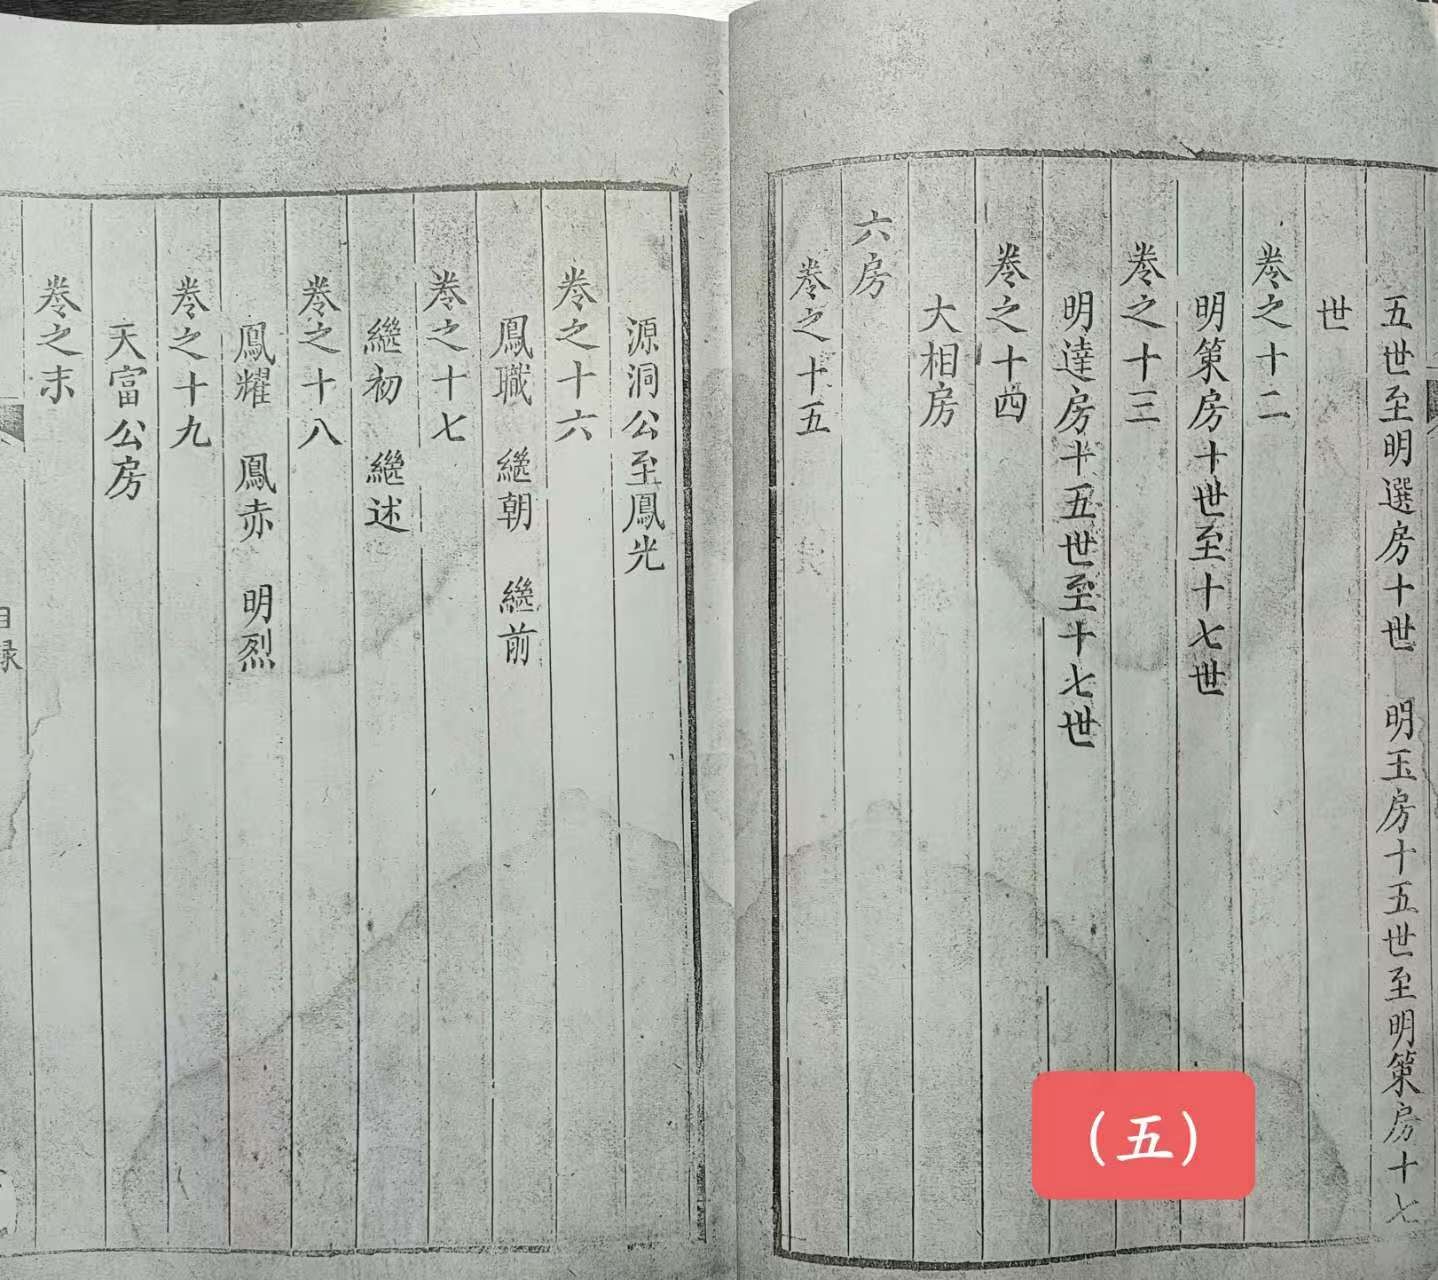 五世至明選房十世　明玉房十五世至明第房十七
世
卷之十二
明第房十世至十七世
卷之十三
明達房十五世至十七世
卷之十四
大相房
六房
卷之十五
源洞公至鳳光
卷之十六
鳳職　繼朝　繼前
卷之十七
繼初　繼述
卷之十八
鳳耀　鳳赤　明烈
卷之十九
天富公房
卷之末
目録
（五）